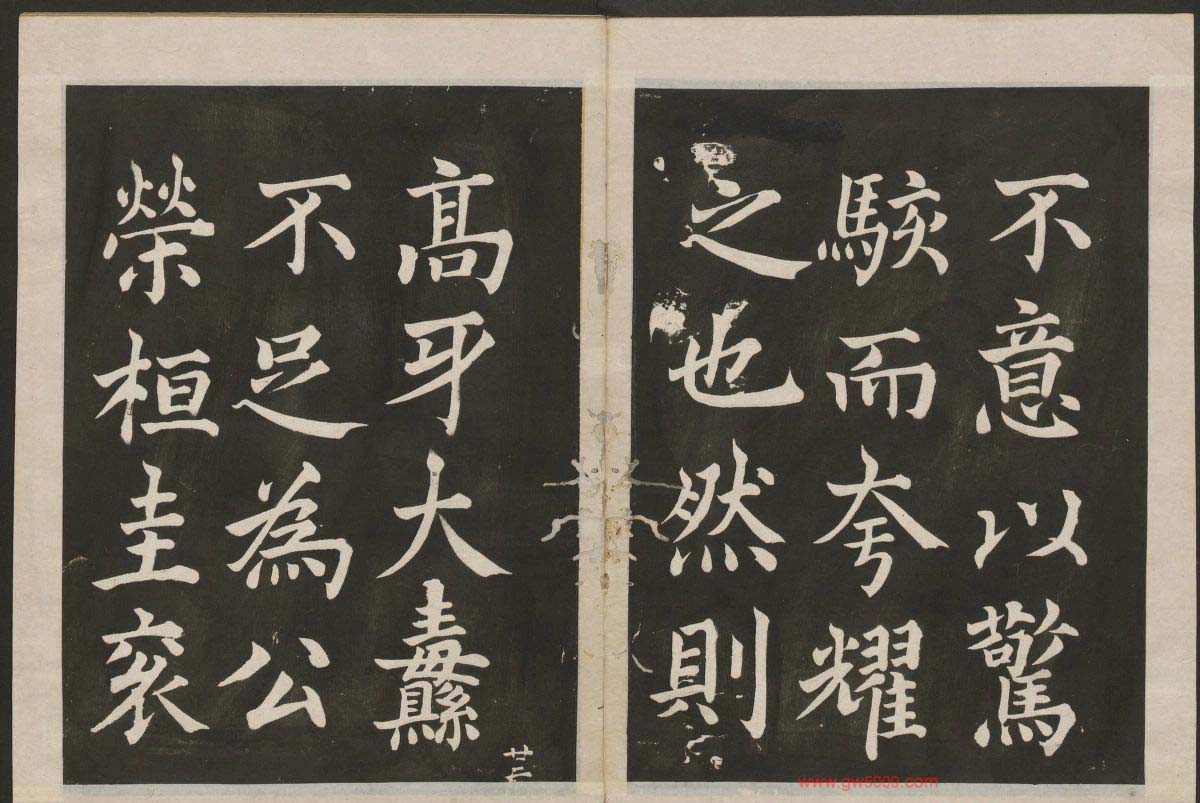 不意以驚
駭而夸耀
之也然則
高牙大纛
不足為公
榮桓圭衮
廿二
www.gw5000.com